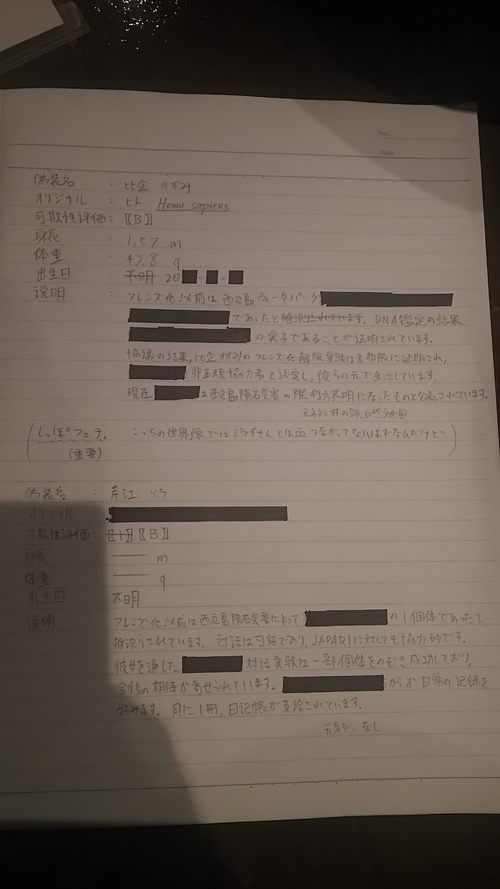 No.
Date
偽装名 : 比企 かがみ
オリジナル : ヒト Homo sapiens
可欺性評価 : 【B】
身長 : 1.57 m
体重 : 47.8 g
出生日 : 不明 20 . .
説明 : フレンズ化以前は西之島ウォータパーク
であったと推測されています。DNA鑑定の結果
の実子であることが証明されています。
協議の結果、比企 かがみのフレンズ化解除実験は無期限に延期され、
非正規協力者と認定し、彼らの元で生活しています。
現在 は西之島隕石災害の際行方不明になったものと公表されています。
(しっぽフェチ。 こっちの世界線ではミライさんとは血つながってないはずなんだけど)
(重要)
偽装名 : 芹江 ソラ
オリジナル :
可欺性評価 : 【B】
身長 : m
体重 : g
出生日 : 不明
説明 : フレンズ化以前は西之島隕石災害によって の1個体であったと
推測されています。対話は可能であり、JAPARIに対しても協力的です。
彼女を通した 対話実験は一部個体をのぞき成功しており、
今後の期待が寄せられています。 日常の記録を
好みます。月に1冊、日記帳が支給されています。
元ネタ: なし